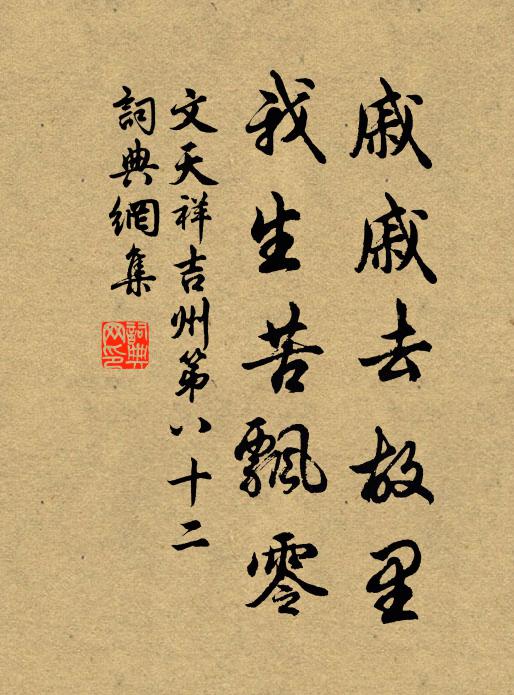 戚戚去故里
我生苦飄零
文天祥吉州第八十二
詞典網集
詞典网印